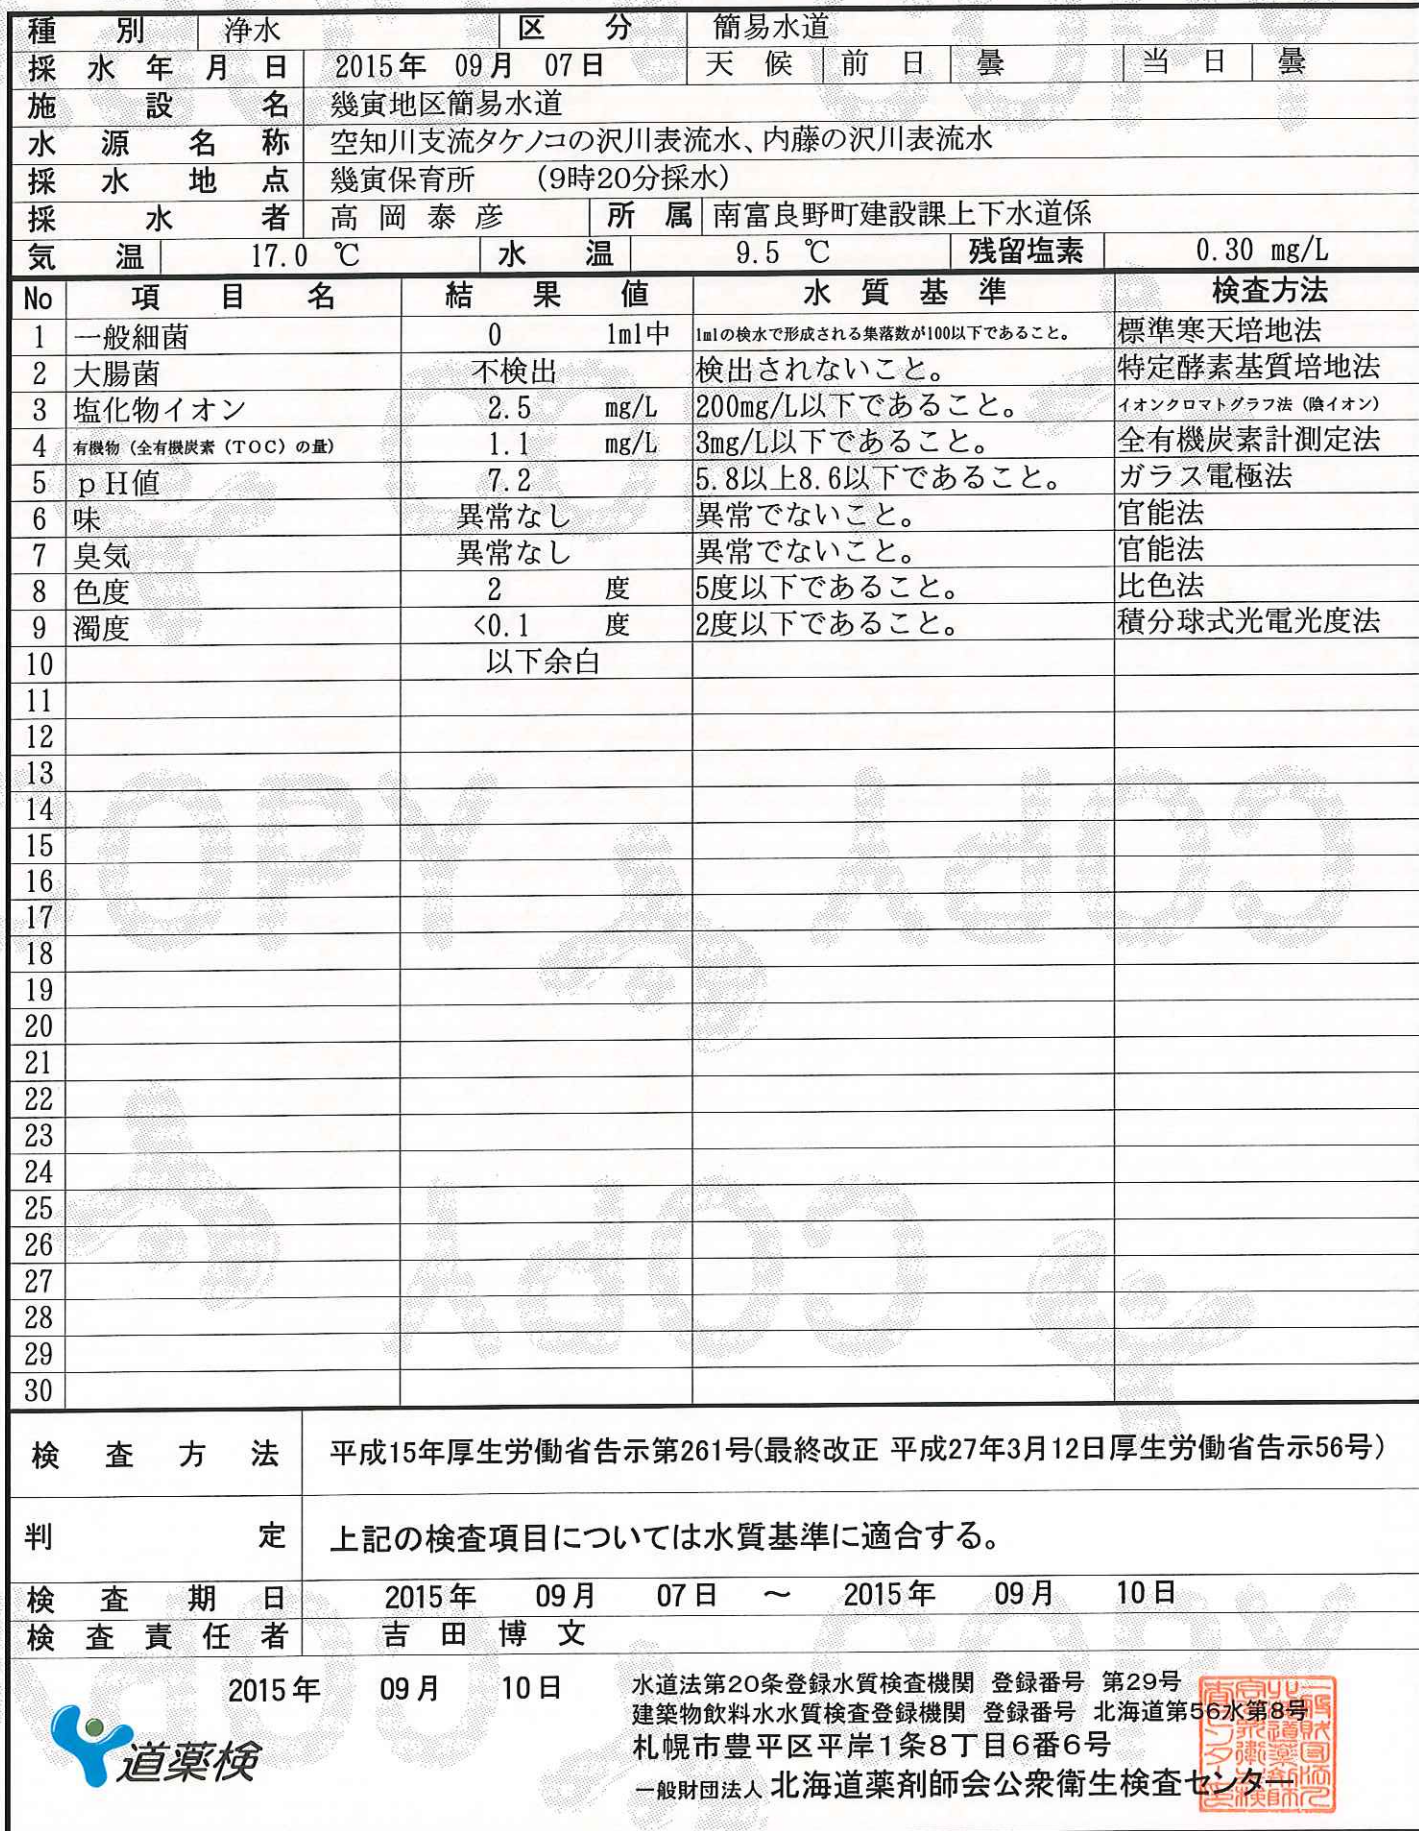 種別 浄水 区分 簡易水道
採水年月日 2015年 09月 07日 天候 前日 曇 当日 曇
施設名 幾寅地区簡易水道
水源名称 空知川支流タケノコの沢川表流水、内藤の沢川表流水
採水地点 幾寅保育所 (9時20分採水)
採水者 高岡泰彦 所属 南富良野町建設課上下水道係
気温 17.0 ℃ 水温 9.5 ℃ 残留塩素 0.30 mg/L
No 項目名 結果値 水質基準 検査方法
1 一般細菌 0 1ml中 1mlの検水で形成される集落数が100以下であること。 標準寒天培地法
2 大腸菌 不検出 検出されないこと。 特定酵素基質培地法
3 塩化物イオン 2.5 mg/L 200mg/L以下であること。 イオンクロマトグラフ法(陰イオン)
4 有機物(全有機炭素(TOC)の量) 1.1 mg/L 3mg/L以下であること。 全有機炭素計測定法
5 pH値 7.2 5.8以上8.6以下であること。 ガラス電極法
6 味 異常なし 異常でないこと。 官能法
7 臭気 異常なし 異常でないこと。 官能法
8 色度 2 度 5度以下であること。 比色法
9 濁度 <0.1 度 2度以下であること。 積分球式光電光度法
10 以下余白
11
12
13
14
15
16
17
18
19
20
21
22
23
24
25
26
27
28
29
30
検査方法 平成15年厚生労働省告示第261号(最終改正 平成27年3月12日厚生労働省告示56号)
判定 上記の検査項目については水質基準に適合する。
検査期日 2015年 09月 07日 ~ 2015年 09月 10日
検査責任者 吉田博文
2015年 09月 10日
水道法第20条登録水質検査機関 登録番号 第29号
建築物飲料水水質検査登録機関 登録番号 北海道第56水第8号
札幌市豊平区平岸1条8丁目6番6号
一般財団法人 北海道薬剤師会公衆衛生検査センター
道薬検
COPY
COPY
COPY
COPY
COPY
COPY
COPY
COPY